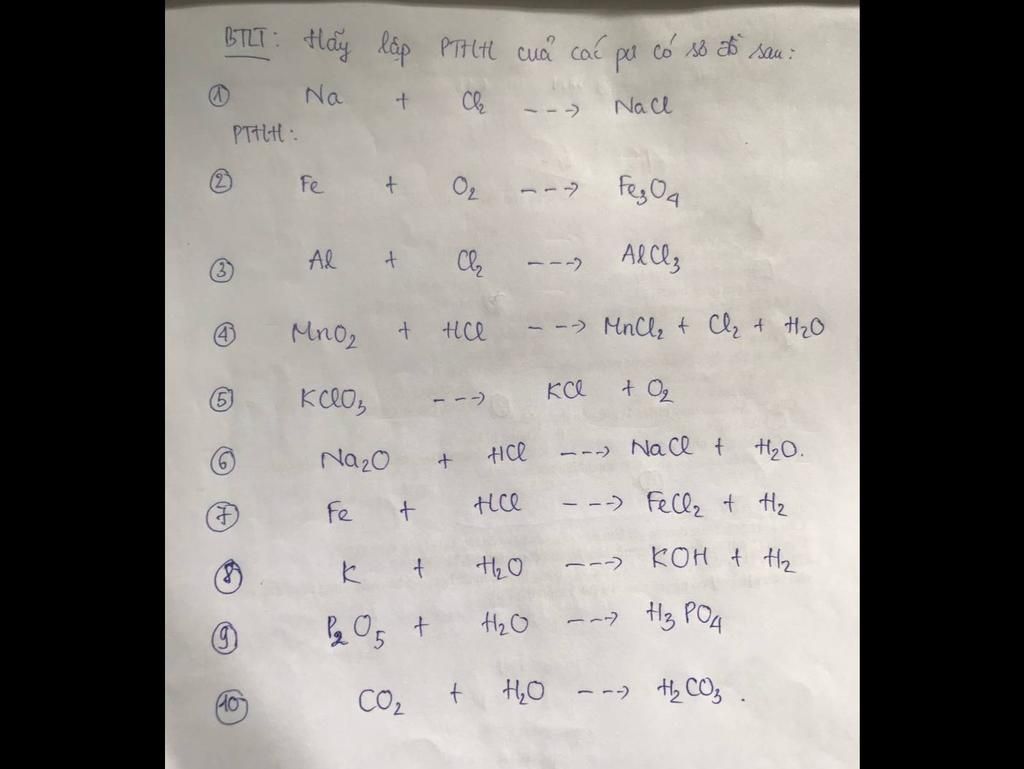 BTLT: Hãy lập PTHH cuả các pư có sơ đồ sau:
① Na + Cl₂ ---> NaCl
PTHH:
② Fe + O₂ ---> Fe₃O₄
③ Al + Cl₂ ---> AlCl₃
④ MnO₂ + HCl ---> MnCl₂ + Cl₂ + H₂O
⑤ KClO₃ ---> KCl + O₂
⑥ Na₂O + HCl ---> NaCl + H₂O.
⑦ Fe + HCl ---> FeCl₂ + H₂
⑧ K + H₂O ---> KOH + H₂
⑨ P₂O₅ + H₂O ---> H₃PO₄
⑩ CO₂ + H₂O ---> H₂CO₃.